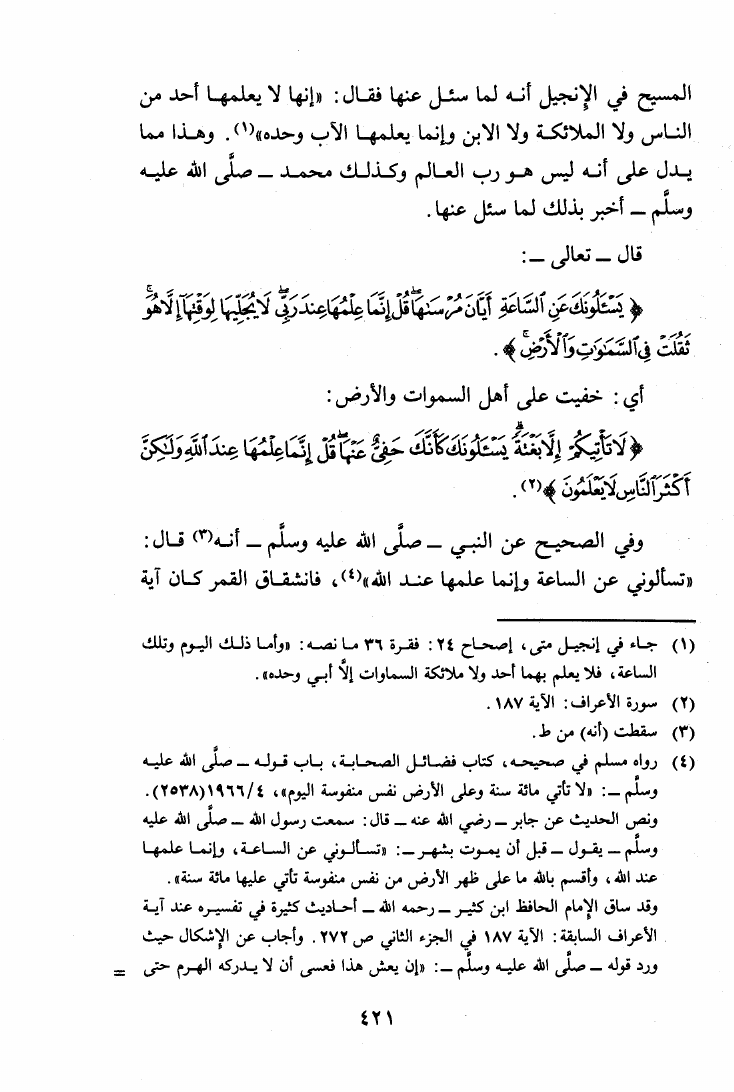 المسيح في الإنجيل أنه لما سئل عنها فقال: «إنها لا يعلمها أحد من
الناس ولا الملائكة ولا الابن وإنما يعلمها الآب وحده»(١). وهذا مما
يدل على أنه ليس هو رب العالم وكذلك محمد ــ صلَّى الله عليه
وسلَّم ــ أخبر بذلك لما سئل عنها.
قال ــ تعالى ــ:
﴿ يَسْـَٔلُونَكَ عَنِ ٱلسَّاعَةِ أَيَّانَ مُرْسَىٰهَا ۖ قُلْ إِنَّمَا عِلْمُهَا عِندَ رَبِّي ۖ لَا يُجَلِّيهَا لِوَقْتِهَآ إِلَّا هُوَ ۚ
ثَقُلَتْ فِي ٱلسَّمَٰوَٰتِ وَٱلْأَرْضِ ۚ ﴾.
أي: خفيت على أهل السموات والأرض:
﴿ لَا تَأْتِيكُمْ إِلَّا بَغْتَةً ۗ يَسْـَٔلُونَكَ كَأَنَّكَ حَفِيٌّ عَنْهَا ۖ قُلْ إِنَّمَا عِلْمُهَا عِندَ ٱللَّهِ وَلَٰكِنَّ
أَكْثَرَ ٱلنَّاسِ لَا يَعْلَمُونَ ﴾(٢).
وفي الصحيح عن النبي ــ صلَّى الله عليه وسلَّم ــ أنه(٣) قال:
«تسألوني عن الساعة وإنما علمها عند الله»(٤)، فانشقاق القمر كان آية
(١) جاء في إنجيل متى، إصحاح ٢٤: فقرة ٣٦ ما نصه: «وأما ذلك اليوم وتلك
الساعة، فلا يعلم بهما أحد ولا ملائكة السماوات إلاَّ أبي وحده».
(٢) سورة الأعراف: الآية ١٨٧.
(٣) سقطت (أنه) من ط.
(٤) رواه مسلم في صحيحه، كتاب فضائل الصحابة، باب قوله ــ صلَّى الله عليه
وسلَّم ــ: «لا تأتي مائة سنة وعلى الأرض نفس منفوسة اليوم»، ١٩٦٦/٤(٢٥٣٨).
ونص الحديث عن جابر ــ رضي الله عنه ــ قال: سمعت رسول الله ــ صلَّى الله عليه
وسلَّم ــ يقول ــ قبل أن يموت بشهر ــ: «تسألوني عن الساعة، وإنما علمها
عند الله، وأقسم بالله ما على ظهر الأرض من نفس منفوسة تأتي عليها مائة سنة».
وقد ساق الإمام الحافظ ابن كثير ــ رحمه الله ــ أحاديث كثيرة في تفسيره عند آية
الأعراف السابقة: الآية ١٨٧ في الجزء الثاني ص ٢٧٢. وأجاب عن الإشكال حيث
ورد قوله ــ صلَّى الله عليه وسلَّم ــ: «إن يعش هذا فعسى أن لا يدركه الهرم حتى =
٤٢١